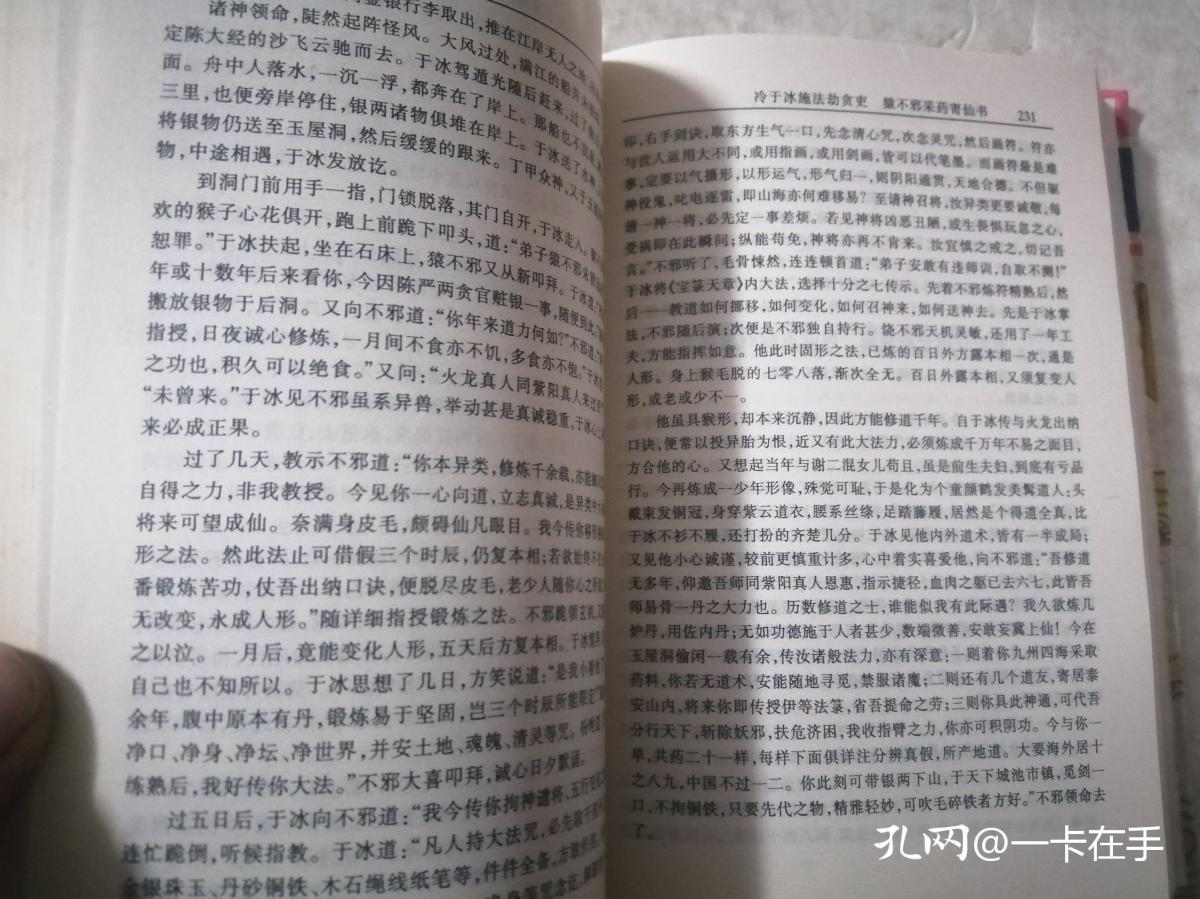 金银行李取出，推在江岸无人之地，
诸神领命，陡然起阵怪风。大风过处，满江的船并未
定陈大经的沙飞云驰而去。于冰驾遁光随后赶来，过了
面。舟中人落水，一沉一浮，都奔在了岸上。那船也不
三里，也便旁岸停住，银两诸物俱堆在岸上。于冰送了水神，
将银物仍送至玉屋洞，然后缓缓的跟来。丁甲众神，又于玉
物，中途相遇，于冰发放讫。
到洞门前用手一指，门锁脱落，其门自开，于冰走入。猿不
欢的猴子心花俱开，跑上前跪下叩头，道：“弟子猿不邪未曾
恕罪。”于冰扶起，坐在石床上，猿不邪又从新叩拜。于冰道：
年或十数年后来看你，今因陈严两贪官赃银一事，随便到此。”
搬放银物于后洞。又向不邪道：“你年来道力何如？”不邪道：
指授，日夜诚心修炼，一月间不食亦不饥，多食亦不饱。”于冰
之功也，积久可以绝食。”又问：“火龙真人同紫阳真人来过否？”
“未曾来。”于冰见不邪虽系异兽，举动甚是真诚稳重，于冰心上
来必成正果。
过了几天，教示不邪道：“你本异类，修炼千余载，亦能
自得之力，非我教授。今见你一心向道，立志真诚，是异类中
将来可望成仙。奈满身皮毛，颇碍仙凡眼目。我今传你移形
形之法。然此法止可借假三个时辰，仍复本相；若欲始终不
番锻炼苦功，仗吾出纳口诀，便脱尽皮毛，老少人随你心之所
无改变，永成人形。”随详细指授锻炼之法。不邪跪领玄机，
之以泣。一月后，竟能变化人形，五天后方复本相。于冰
自己也不知所以。于冰思想了几日，方笑说道：“是我小看
余年，腹中原本有丹，锻炼易于坚固，岂三个时辰所能限定？”
净口、净身、净坛、净世界，并安土地、魂魄、清灵等咒。
练熟后，我好传你大法。”不邪大喜叩拜，诚心日夕默诵。
过五日后，于冰向不邪道：“我今传你拘神遣将、五行变化
连忙跪倒，听候指教。于冰道：“凡人持大法咒，必先取
金银珠玉、丹砂铜铁、木石绳线纸笔等，件件全备，方敢作用。
身等咒念讫，
冷于冰施法劫贪吏 猿不邪采药寄仙书 231
印，右手剑诀，取东方生气一口，先念清心咒，次念灵咒，然后画符。符亦
与世人运用大不同，或用指画，或用剑画，皆可以代笔墨。而画符最是难
事，定要以气摄形，以形运气，形气归一，则阴阳通贯，天地合德。不但驱
神役鬼，叱电逐雷，即山海亦何难移易？至请神召将，汝异类更要诚敬，每
请一神一将，必先定一事差烦。若见神将凶恶丑陋，或生畏惧玩忽之心，
受祸即在此瞬间；纵能苟免，神将亦再不肯来。汝宜慎之戒之，切记吾
言。”不邪听了，毛骨悚然，连连顿首道：“弟子安敢有违师训，自取不测！”
于冰将《宝箓天章》内大法，选择十分之七传示。先着不邪炼符精熟后，然
后一一教道如何挪移，如何变化，如何召神来，如何送神去。先是于冰掌
法，不邪随后演；次便是不邪独自持行。饶不邪天机灵敏，还用了一年工
夫，方能指挥如意。他此时固形之法，已炼的百日外方露本相一次，通是
人形。身上猴毛脱的七零八落，渐次全无。百日外露本相，又须复变人
形，或老或少不一。
他虽具猴形，却本来沉静，因此方能修道千年。自于冰传与火龙出纳
口诀，便常以投异胎为恨，近又有此大法力，必须炼成千万年不易之面目，
方合他的心。又想起当年与谢二混女儿苟且，虽是前生夫妇，到底有亏品
行。今再炼成一少年形像，殊觉可耻，于是化为个童颜鹤发美髯道人：头
戴束发铜冠，身穿紫云道衣，腰系丝绦，足踏藤履，居然是个得道全真，比
于冰不衫不履，还打扮的齐楚几分。于冰见他内外道术，皆有一半成局；
又见他小心诚谨，较前更慎重许多，心中着实喜爱他，向不邪道：“吾修道
无多年，仰邀吾师同紫阳真人恩惠，指示捷径，血肉之躯已去六七，此皆吾
师易骨一丹之大力也。历数修道之士，谁能似我有此际遇？我久欲炼几
炉丹，用佐内丹；无如功德施于人者甚少，数端微善，安敢妄冀上仙！今在
玉屋洞偷闲一载有余，传汝诸般法力，亦有深意：一则着你九州四海采取
药料，你若无道术，安能随地寻觅，禁服诸魔；二则还有几个道友，寄居泰
安山内，将来你即传授伊等法箓，省吾提命之劳；三则你具此神通，可代吾
分行天下，斩除妖邪，扶危济困，我收指臂之力，你亦可积阴功。今与你一
单，共药二十一样，每样下面俱详注分辨真假，所产地道。大要海外居十
之八九，中国不过一二。你此刻可带银两下山，于天下城池市镇，觅剑一
口，不拘铜铁，只要先代之物，精雅轻妙，可吹毛碎铁者方好。”不邪领命去
了。
孔网@一卡在手